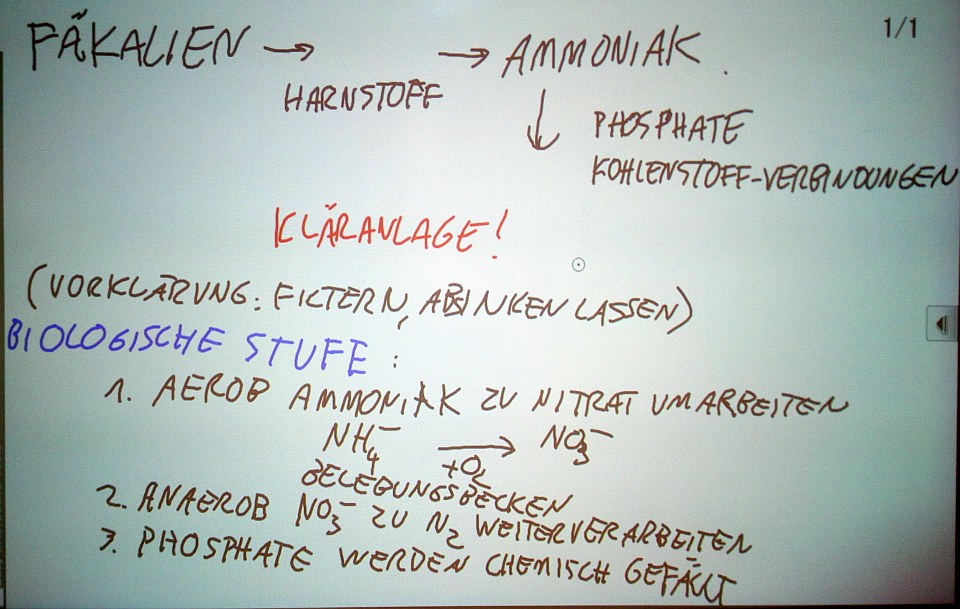 1/1
FÄKALIEN → → AMMONIAK.
HARNSTOFF
↓ PHOSPHATE
KOHLENSTOFF-VERBINDUNGEN
KLÄRANLAGE!
(VORKLÄRUNG: FILTERN, ABSINKEN LASSEN)
BIOLOGISCHE STUFE:
1. AEROB AMMONIAK ZU NITRAT UMARBEITEN
NH₄⁻ → NO₃⁻
+O₂
BELEGUNGSBECKEN
2. ANAEROB NO₃⁻ ZU N₂ WEITERVERARBEITEN
3. PHOSPHATE WERDEN CHEMISCH GEFÄLLT